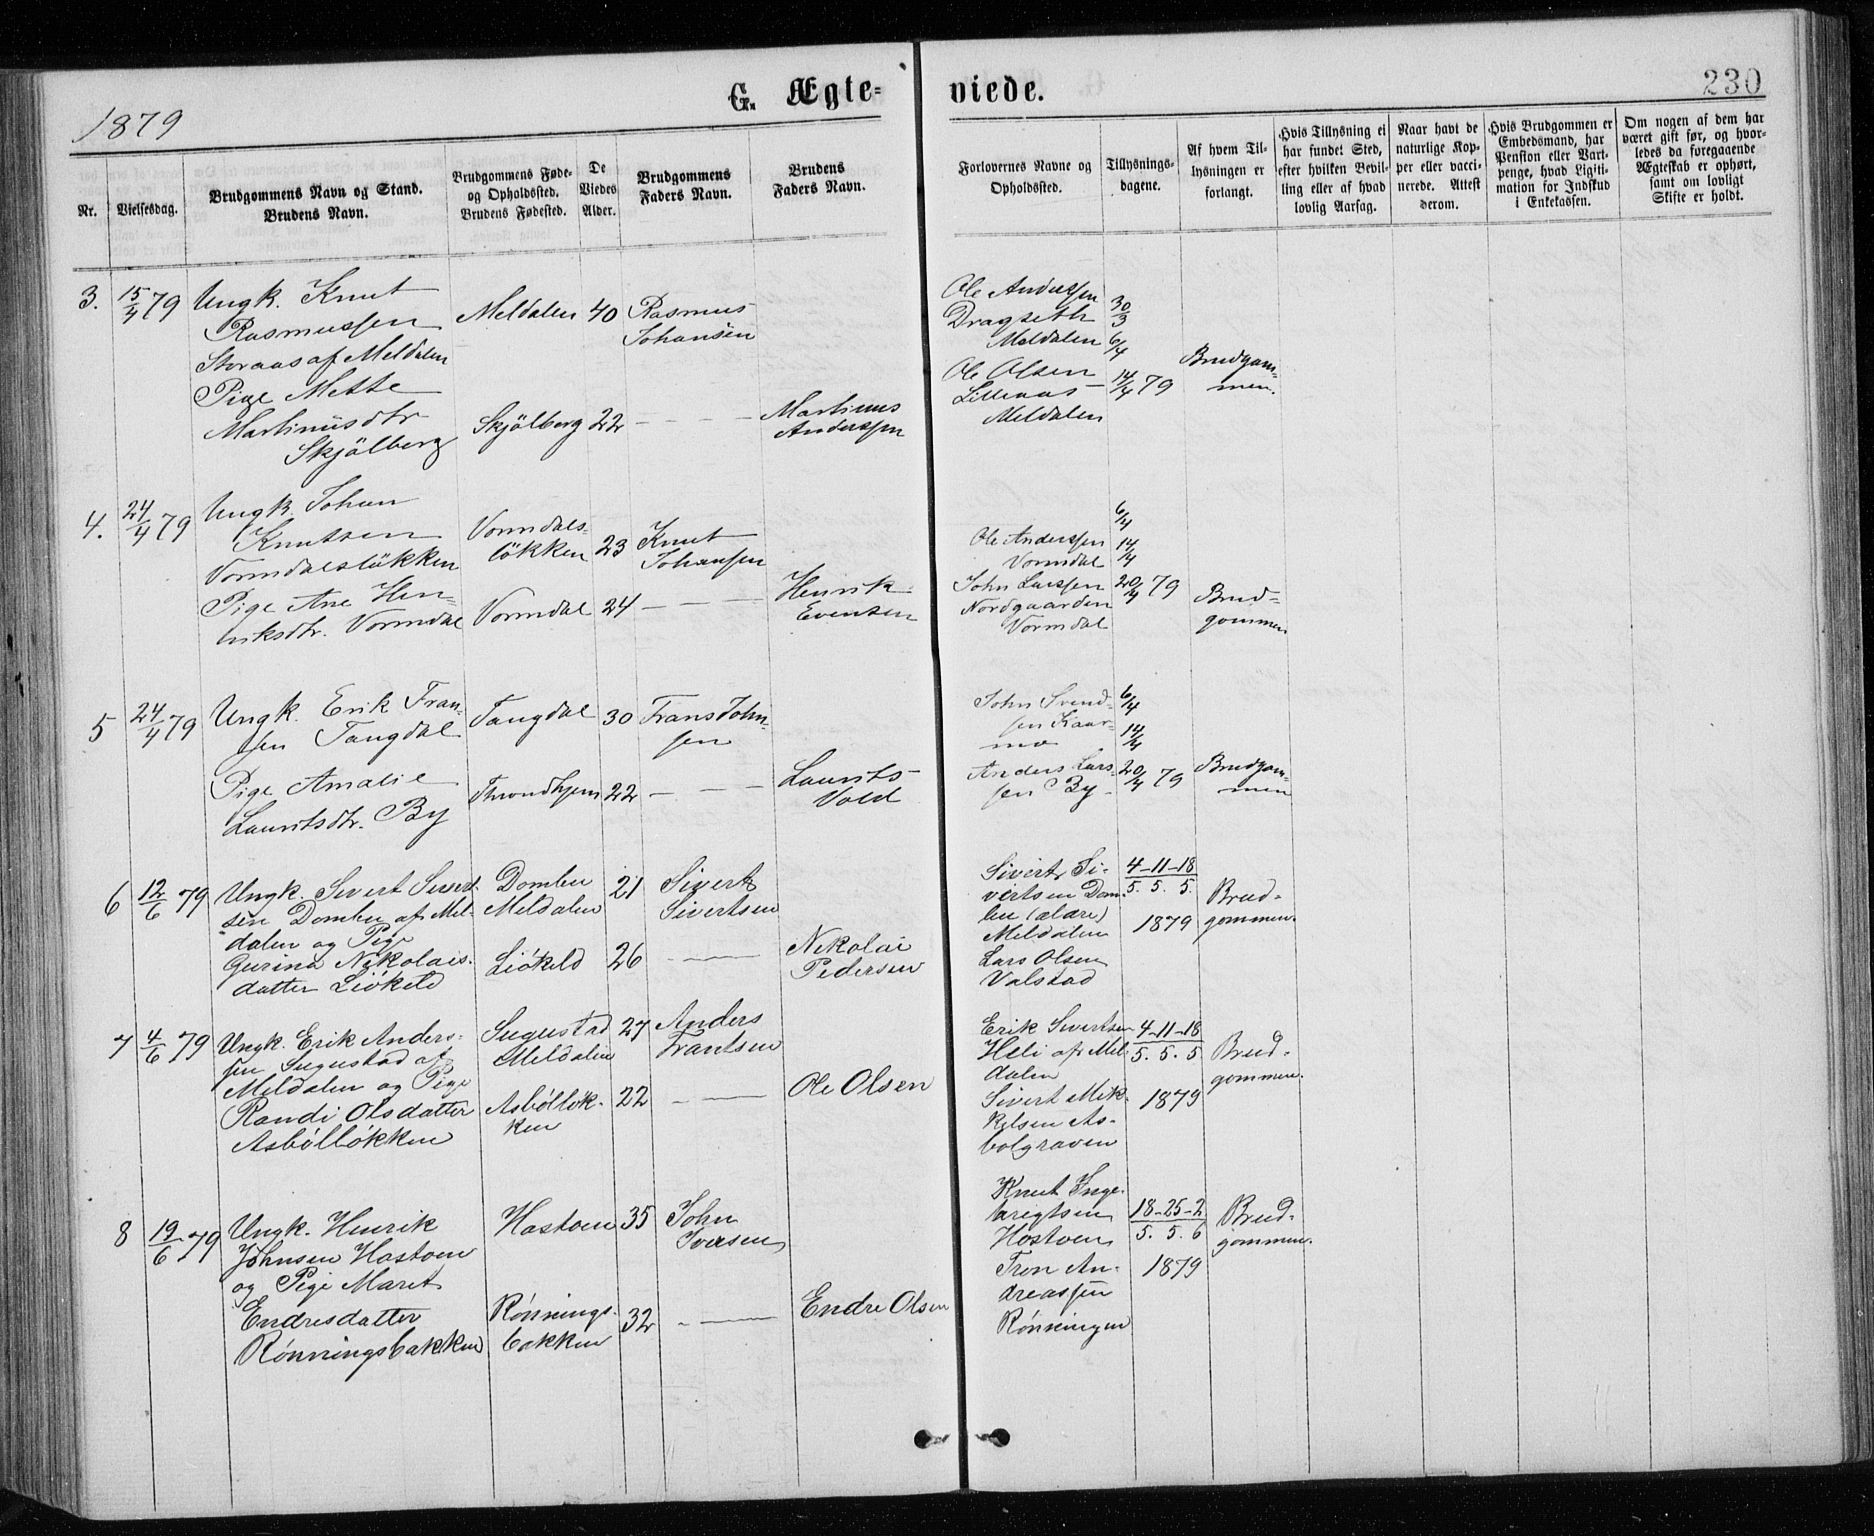 1879
G. Ægte-
viede.
230
Nr.
Vielsesdag.
Brudgommens Navn og Stand.
Brudens Navn.
Brudgommens Føde-
og Opholdssted.
Brudens Fødested.
De
Viedes
Alder.
Brudgommens
Faders Navn.
Brudens
Faders Navn.
Forlovernes Navne og
Opholdssted.
Tillysnings-
dagene.
Af hvem Til-
lysningen er
forlangt.
Hvis Tillysning ei
har fundet Sted,
efter hvilken Bevil-
ling eller af hvad
lovlig Aarsag.
Naar havt de
naturlige Kop-
per eller vacci-
nerede. Attest
derom.
Hvis Brudgommen er
Embedsmand, har
Pension eller Vart-
penge, hvad Ligiti-
mation for Indskud
i Enkekassen.
Om nogen af dem har
været gift før, og hvor-
ledes da foregaaende
Ægteskab er ophørt,
samt om lovligt
Skifte er holdt.
3.
15/4 79
Ungk. Knut
Rasmussen
Storaas af Meldalen
Pige Mette
Martinusdtr
Skjölberg
Meldalen
40
Rasmus
Johansen
Skjölberg
22
Martinus
Anderssen
Ole Anderssen
Dragseth
Meldalen
Ole Olsen
Lilleaas
Meldalen
30/3
6/4
14/4 79
Brudgom-
men.
4.
24/4 79
Ungk. Johan
Knutsen
Vormdalslökken
Pige Ane Hen-
riksdtr. Vormdal
Vormdals-
lökken
23
Knut
Johanssen
Vormdal
24
Henrik
Evensen
Ole Anderssen
Vormdal
John Larssen
Nordgaarden
Vormdal
6/4
14/4
20/4 79
Brud-
gommen
5
24/4 79
Ungk. Erik Fran-
sen Tangdal
Pige Amalie
Lauritsdtr. By
Tangdal
30
Frans John-
sen
Throndhjem
22
Laurits
Vold
John Svend-
sen Kaar-
mo
Anders Lars-
sen By
6/4
14/4
20/4 79
Brudgom-
men
6
12/6 79
Ungk. Sivert Sivert-
sen Dombu af Mel-
dalen og Pige
Gurina Nikolais-
datter Liökeld
Dombu
Meldalen
21
Sivert
Sivertsen
Liökeld
26
Nikolai
Pedersen
Sivert Si-
vertsen Dom-
bu (ældre)
Meldalen
Lars Olsen
Valstad
4-11-18
5. 5. 5.
1879
Brud-
gommen.
7
4/6 79
Ungk. Erik Anders-
sen Sugustad af
Meldalen og Pige
Randi Olsdatter
Asböllökken
Sugustad
Meldalen
27
Anders
Frantsen
Asböllök-
ken
22
Ole Olsen
Erik Sivertsen
Heli af Mel-
dalen
Sivert Mik-
kelsen As-
bolgraven
4-11-18
5. 5. 5
1879
Brud-
gommen.
8
19/6 79
Ungk. Henrik
Johnsen Hostoen
og Pige Maret
Endresdatter
Rönningsbakken
Hostoen
35
John
Iversen
Rönnings-
bakken
32
Endre Olsen
Knut Inge-
bregtsen
Hostoen
Tron An-
dreassen
Rönningen
18-25-2
5. 5. 6
1879
Brud-
gommen.